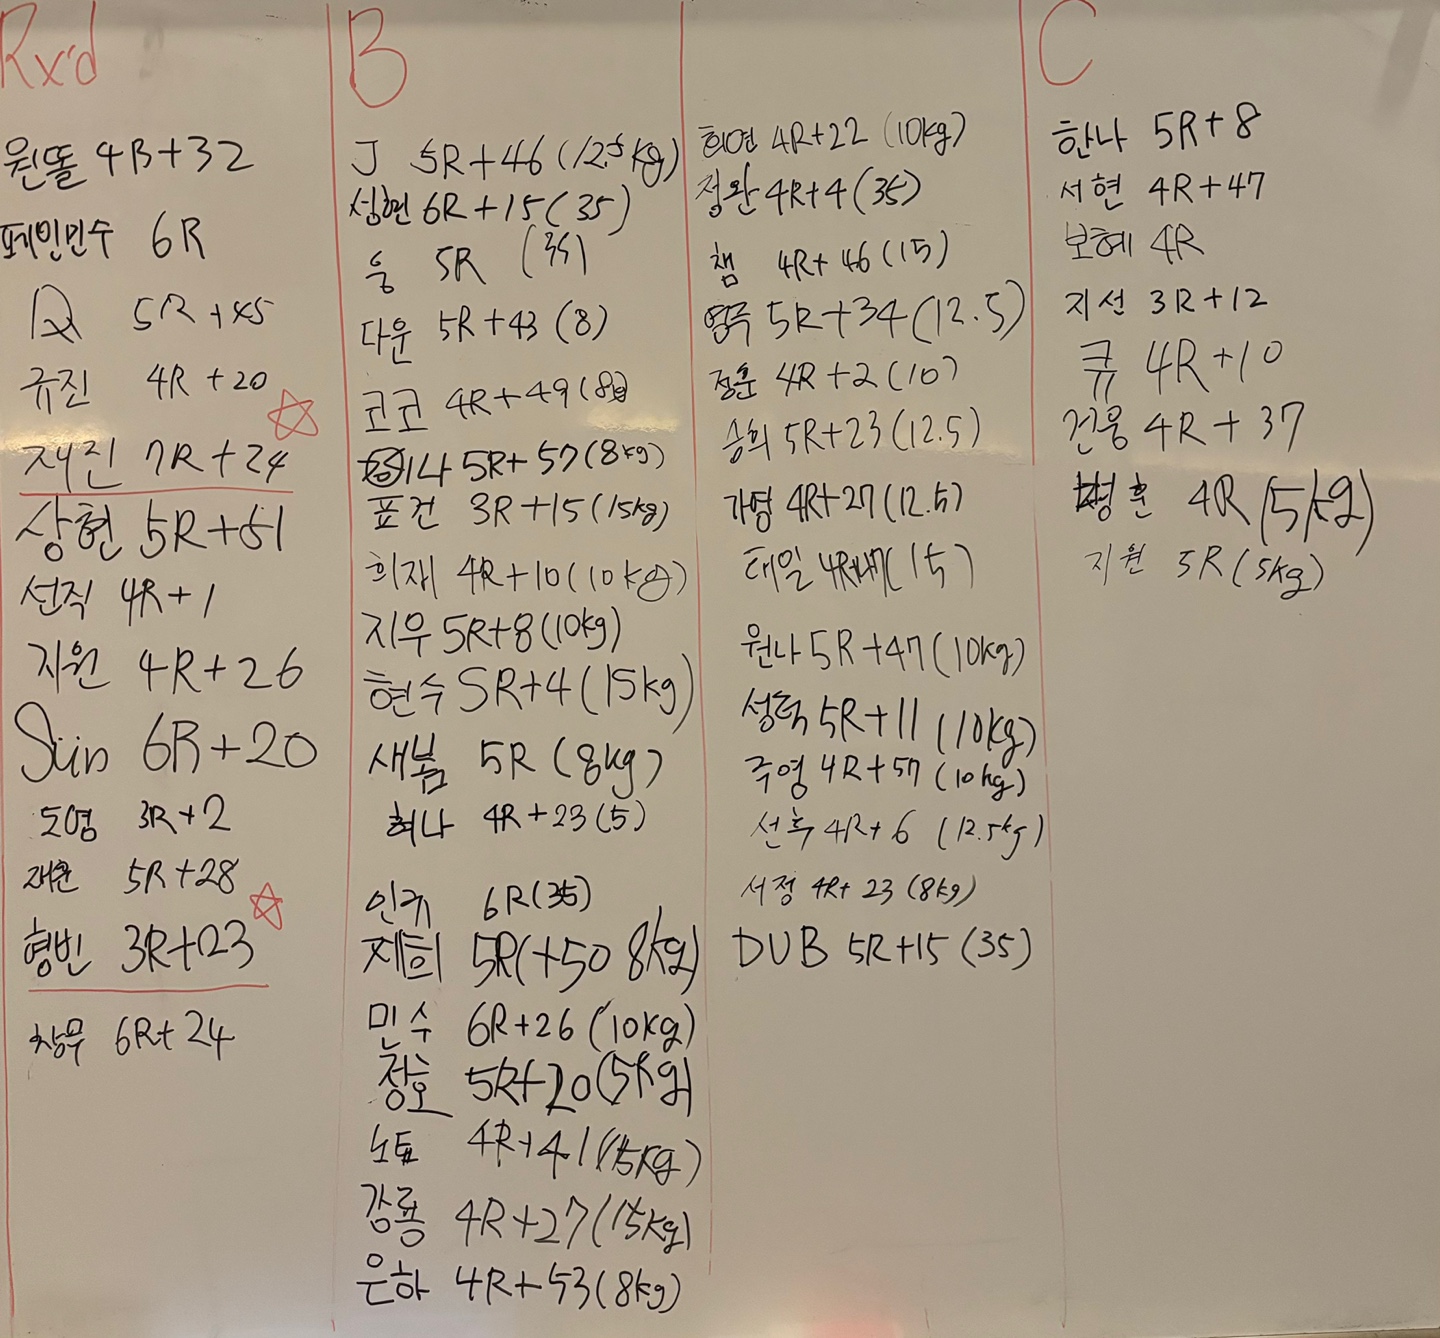 Rx'd
원똘 4R+32
페인민수 6R
Q 5R+45
규진 4R+20
재진 7R+24
상현 5R+51
선직 4R+1
지원 4R+26
Sun 6R+20
도영 3R+2
재훈 5R+28
형빈 3R+23
창무 6R+24
B
J 5R+46(12.5kg)
성현 6R+15(35)
웅 5R (35)
다운 5R+43(8)
코코 4R+49(8kg)
5R+57(8kg)
표건 3R+15(15kg)
희재 4R+10(10kg)
지우 5R+8(10kg)
현수 5R+4(15kg)
새봄 5R(8kg)
혀나 4R+23(5)
인귀 6R(35)
제희 5R(+50 8kg)
민수 6R+26(10kg)
창호 5R+20(5kg)
노토 4R+41(15kg)
강룡 4R+27(15kg)
은하 4R+53(8kg)
희연 4R+22(10kg)
정완 4R+4(35)
챔 4R+46(15)
5R+34(12.5)
정훈 4R+2(10)
승희 5R+23(12.5)
가영 4R+27(12.5)
태일 (15)
원나 5R+47(10kg)
5R+11(10kg)
주영 4R+57(10kg)
선호 4R+6(12.5kg)
서정 4R+23(8kg)
DUB 5R+15(35)
C
한나 5R+8
서현 4R+47
보혜 4R
지선 3R+12
큐 4R+10
건웅 4R+37
병훈 4R(5kg)
지원 5R(5kg)